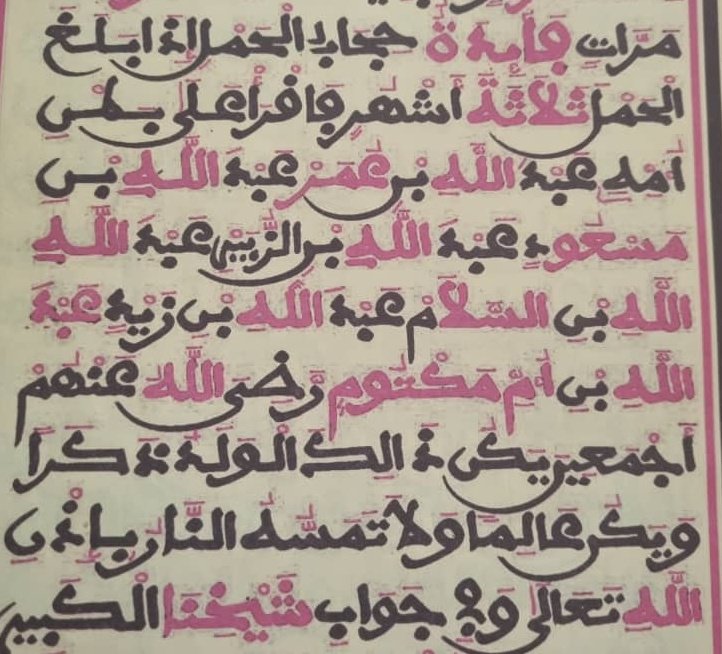 مرات فايدة حجاب الحمل إذا ابلغ
الحمل ثلاثة أشهر فاقرا على بطن
امه عبد الله بن عمر عبد الله بن
مسعود عبد الله بن الزبير عبد الله
الله بن السلام عبد الله بن زيد عبد
الله بن أم مكتوم رضى الله عنهم
أجمعين يكن ذالك الولد ذكرا
ويكن عالما ولا تمسه النار باذن
الله تعالى وفي جواب شيخنا الكبير